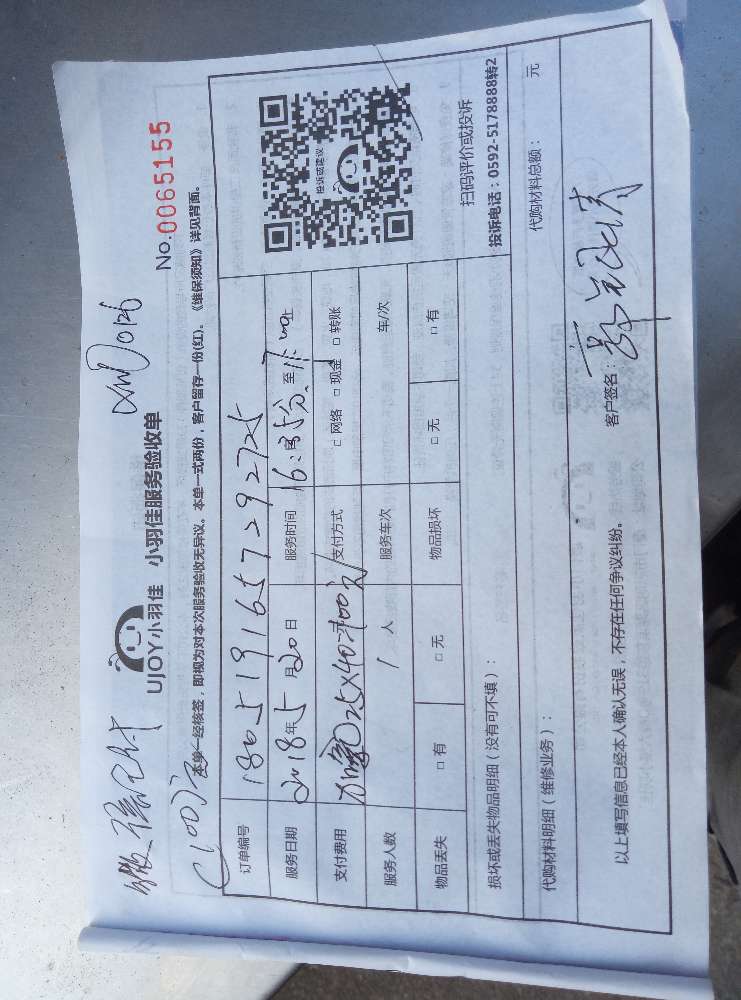 XM 0126
No.0065155
UJOY小羽佳 小羽佳服务验收单
(100元)
本单一经核签，即视为对本次服务验收无异议。本单一式两份，客户留存一份(红)。《维保须知》详见背面。
订单编号 1805191657292725
服务日期 2018年5月20日 服务时间 16:35分至17:00止
支付费用 25×40=100元 支付方式 □网络 □现金 □转账
服务人数 1人 服务车次 车/次
物品丢失 □有 □无 物品损坏 □无 □有
投诉或建议
扫码评价或投诉
投诉电话：0592-5178888转2
损坏或丢失物品明细（没有可不填）：
代购材料明细（维修业务）： 代购材料总额： 元
以上填写信息已经本人确认无误，不存在任何争议纠纷。 客户签名：